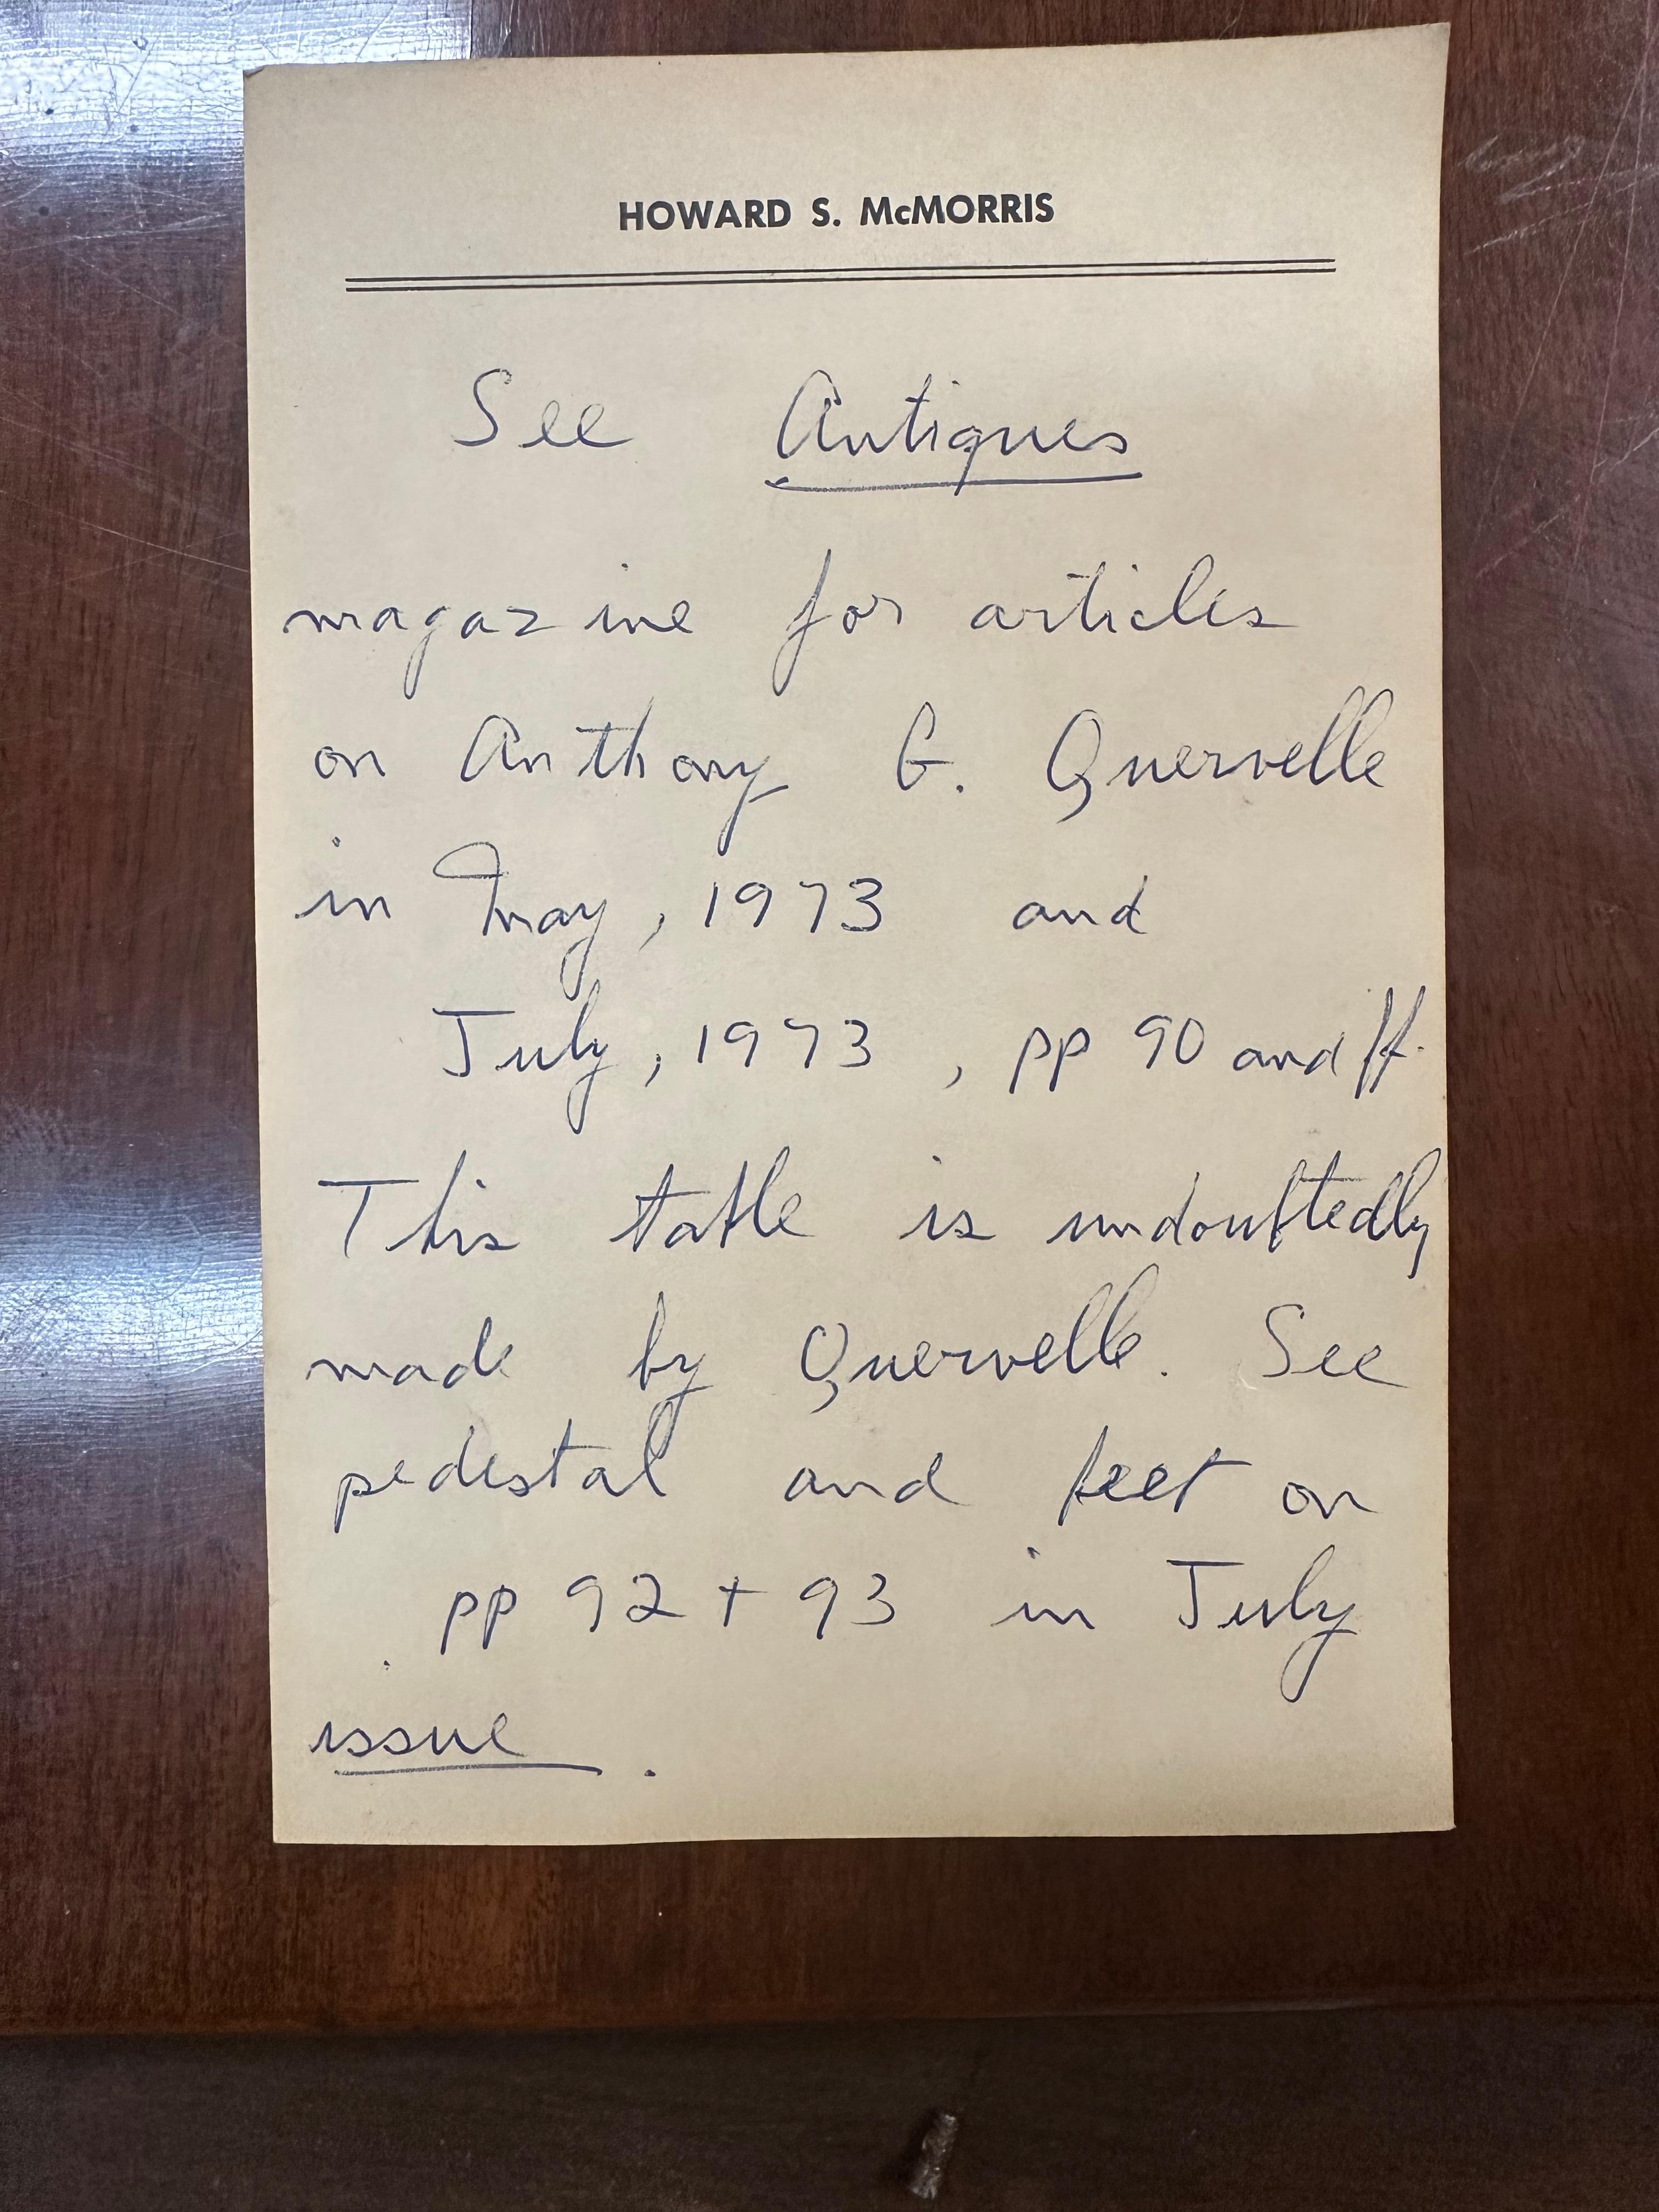 HOWARD S. McMORRIS
See Antiques
magazine for articles
on Anthony G. Quervelle
in May, 1973 and
July, 1973, pp 90 and ff.
This table is undoubtedly
made by Quervelle. See
pedestal and feet on
pp 92 + 93 in July
issue.